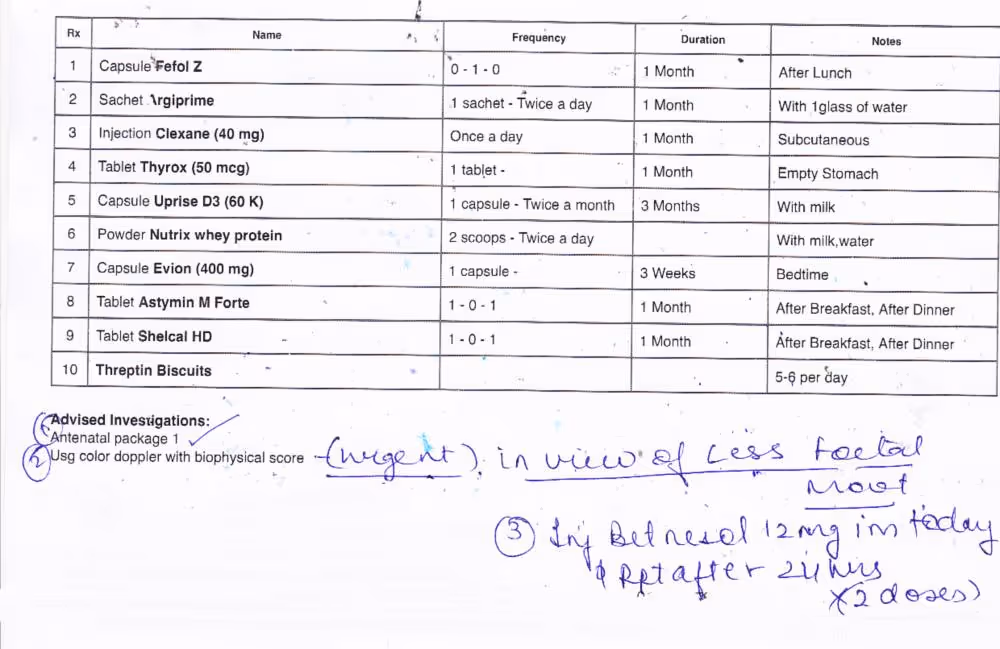 Rx Name Frequency Duration Notes
1 Capsule Fefol Z 0 - 1 - 0 1 Month After Lunch
2 Sachet Argiprime 1 sachet - Twice a day 1 Month With 1glass of water
3 Injection Clexane (40 mg) Once a day 1 Month Subcutaneous
4 Tablet Thyrox (50 mcg) 1 tablet - 1 Month Empty Stomach
5 Capsule Uprise D3 (60 K) 1 capsule - Twice a month 3 Months With milk
6 Powder Nutrix whey protein 2 scoops - Twice a day With milk,water
7 Capsule Evion (400 mg) 1 capsule - 3 Weeks Bedtime
8 Tablet Astymin M Forte 1 - 0 - 1 1 Month After Breakfast, After Dinner
9 Tablet Shelcal HD 1 - 0 - 1 1 Month After Breakfast, After Dinner
10 Threptin Biscuits 5-6 per day
① Advised Investigations:
Antenatal package 1 ✓
② Usg color doppler with biophysical score - (urgent) in view of less foetal
movt
③ Inj Betnesol 12mg im today
& Rpt after 24 hrs
x (2 doses)